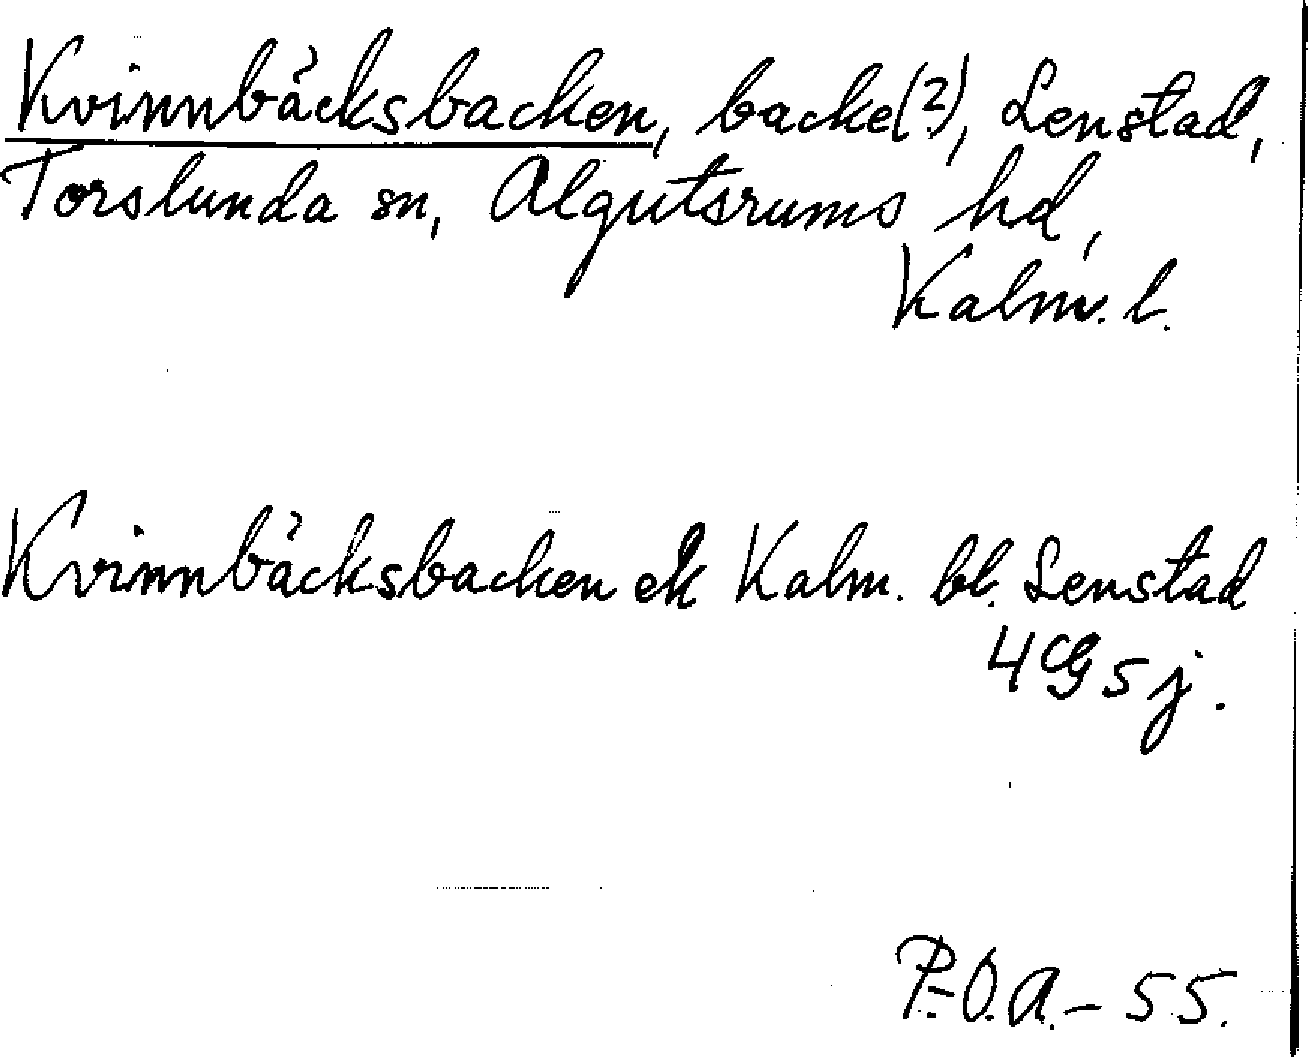 Kvinnbäcksbacken, backe(?), Lenstad,
Torslunda sn, Algutsrums hd,
Kalm. l.
Kvinnbäcksbacken ek Kalm. bl. Lenstad
4 G 5 j.
P.-O.A.-55.